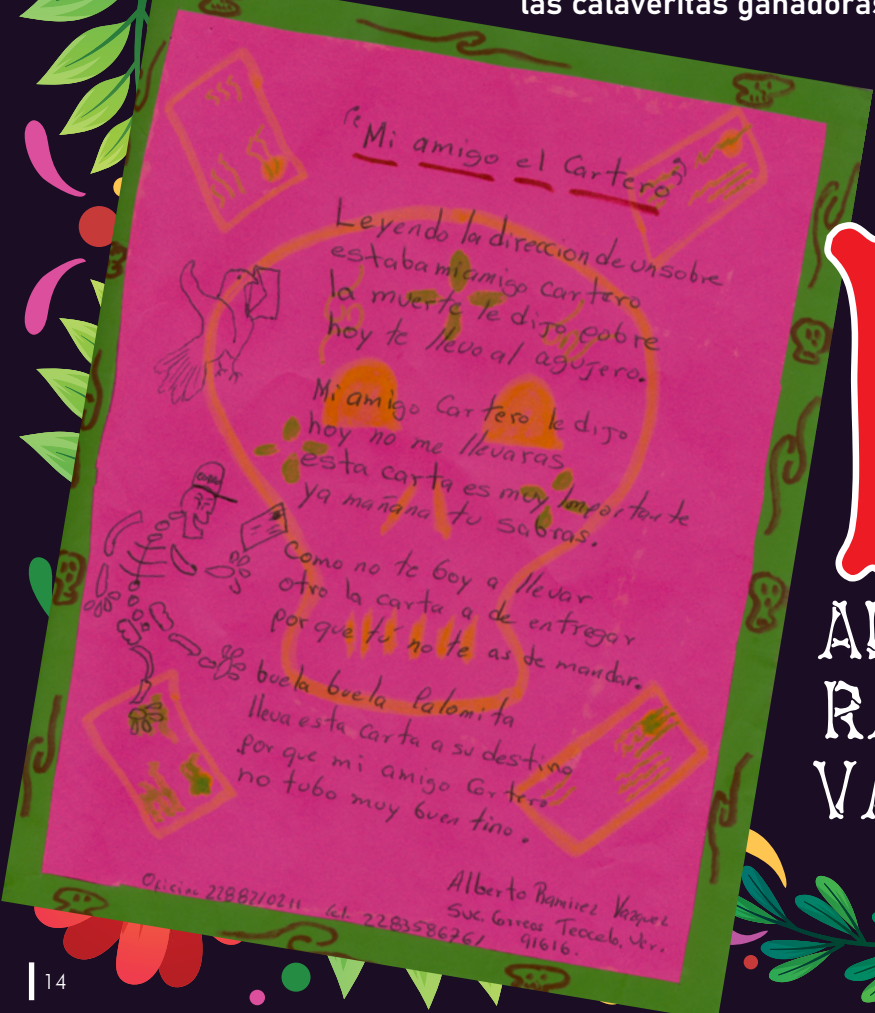 las calaveritas ganadoras
"Mi amigo el Cartero"
Leyendo la direccion de un sobre
estaba mi amigo Cartero
la muerte le dijo pobre
hoy te llevo al agujero.
Mi amigo Cartero le dijo
hoy no me llevaras
esta carta es muy Importante
ya mañana tu sabras.
Como no te boy a llevar
otro la carta a de entregar
por que tú no te as de mandar.
buela buela Palomita
lleva esta carta a su destino
por que mi amigo Cartero
no tubo muy buen tino.
Alberto Ramirez Vazquez
Suc. Correos Teocelo, Ver.
91616.
Oficina 2288210211 Cel. 2283586761
14